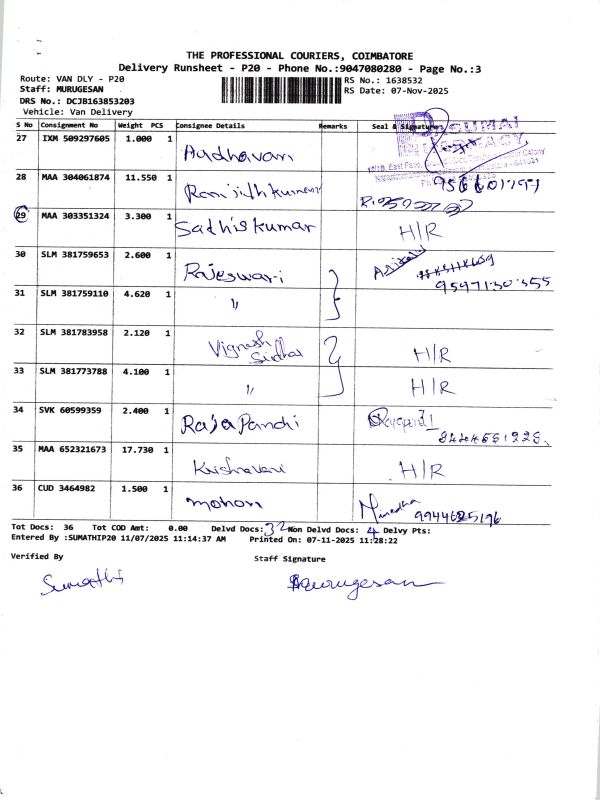 THE PROFESSIONAL COURIERS, COIMBATORE
Delivery Runsheet - P20 - Phone No.:9047080280 - Page No.:3
Route: VAN DLY - P20 RS No.: 1638532
Staff: MURUGESAN RS Date: 07-Nov-2025
DRS No.: DCJB163853203
Vehicle: Van Delivery
S No Consignment No Weight PCS Consignee Details Remarks Seal & Signature
27 IXM 509297605 1.000 1 Aadhavan
28 MAA 304061874 11.550 1 Ranjithkumar
29 MAA 303351324 3.300 1 Sathiskumar H/R
30 SLM 381759653 2.600 1 Rajeswari
9597130355
31 SLM 381759110 4.620 1 "
32 SLM 381783958 2.120 1 Vignesh H/R
33 SLM 381773788 4.100 1 " H/R
34 SVK 60599359 2.400 1 Raja Pandi
35 MAA 652321673 17.730 1 Krishnaveni H/R
36 CUD 3464982 1.500 1 mohan
Tot Docs: 36 Tot COD Amt: 0.00 Delvd Docs: 32 Non Delvd Docs: 4 Delvy Pts:
Entered By :SUMATHIP20 11/07/2025 11:14:37 AM Printed On: 07-11-2025 11:28:22
Verified By Staff Signature
Sumathi Murugesan